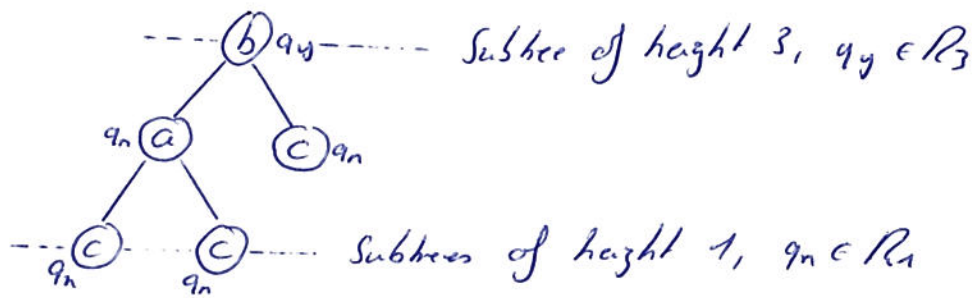 b q_y Subtree of height 3, q_y ∈ R_3
q_n a c q_n
c c Subtrees of height 1, q_n ∈ R_1
q_n q_n